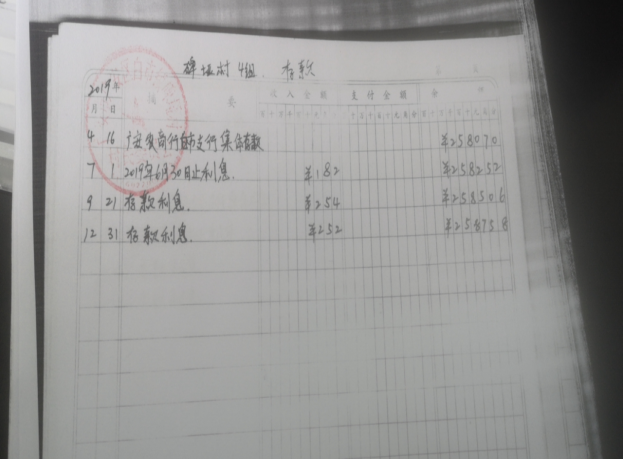 碑垭村 4组. 存款
2019年 摘 要 收入金额 支付金额 余 额
月 日
4 16 广安农商行白市支行集体存款 ¥258070
7 1 2019年6月30日止利息. ¥182 ¥258252
9 21 存款利息. ¥254 ¥258506
12 31 存款利息. ¥252 ¥258758